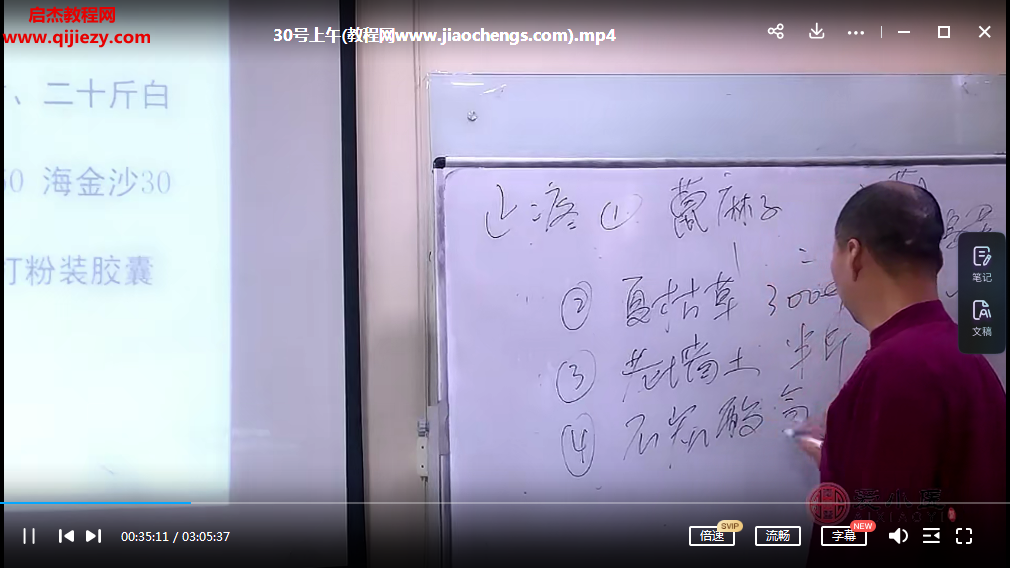 启杰教程网
www.qijiezy.com
30号上午(教程网www.jiaochengs.com).mp4
、二十斤白
0 海金沙30
打粉装胶囊
止疼 ① 蓖麻子
② 夏枯草 3000
③ 老墙土 半斤
④
笔记
文稿
00:35:11 / 03:05:37
倍速
SVIP
流畅
字幕
NEW